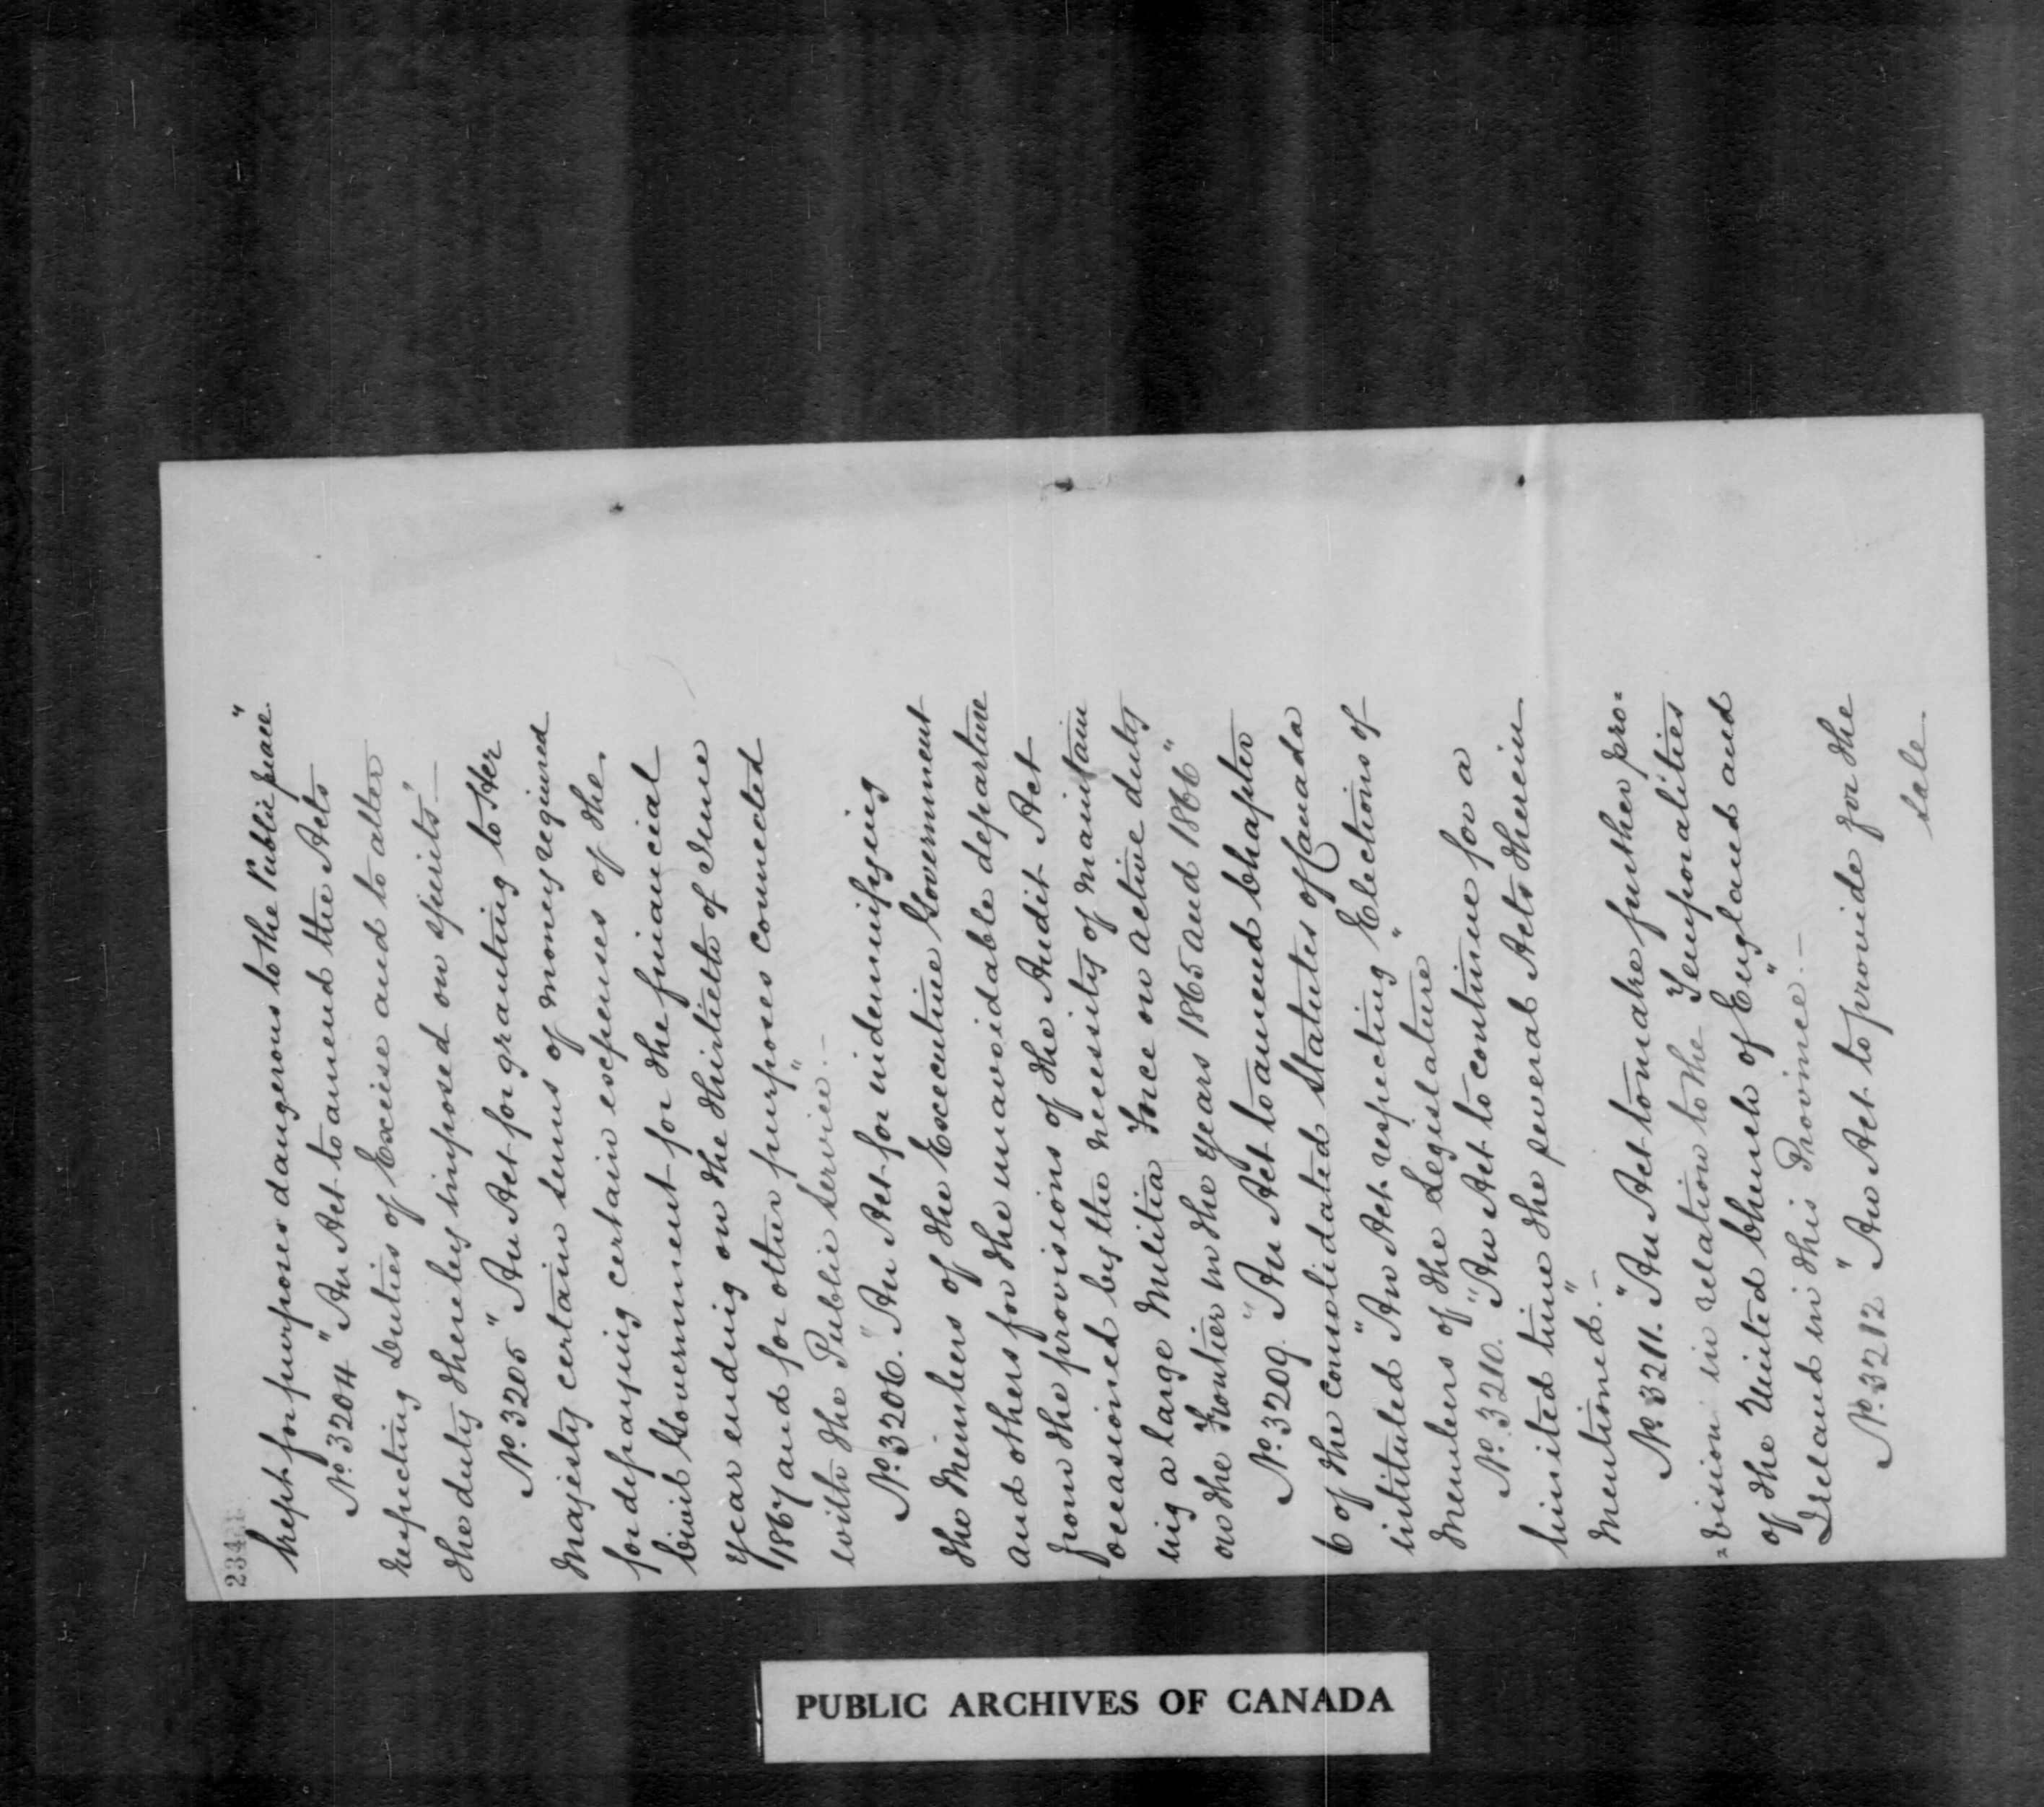 kept for purposes dangerous to the Public peace."
No. 3204 "An Act to amend the Acts
respecting Duties of Excise and to alter
the duty thereby imposed on spirits".—
No. 3205 "An Act for granting to Her
Majesty certain sums of money required
for defraying certain expenses of the
Civil Government for the financial
year ending on the thirtieth of June
1867 and for other purposes connected
with the Public Service".—
No. 3206. "An Act for indemnifying
the Members of the Executive Government
and others for the unavoidable departure
from the provisions of the Audit Act
occasioned by the necessity of maintain
ing a large Militia Force on active duty
on the Frontier in the years 1865 and 1866"
No. 3209. "An Act to amend Chapter
6 of the Consolidated Statutes of Canada
intituled "An Act respecting Elections of
Members of the Legislature"
No. 3210. "An Act to continue for a
limited time the several Acts therein
Mentioned".—
No. 3211. "An Act to make further pro=
=vision in relation to the Temporalities
of the United Church of England and
Ireland in this Province".—
No. 3212 "An Act to provide for the
Sale
PUBLIC ARCHIVES OF CANADA